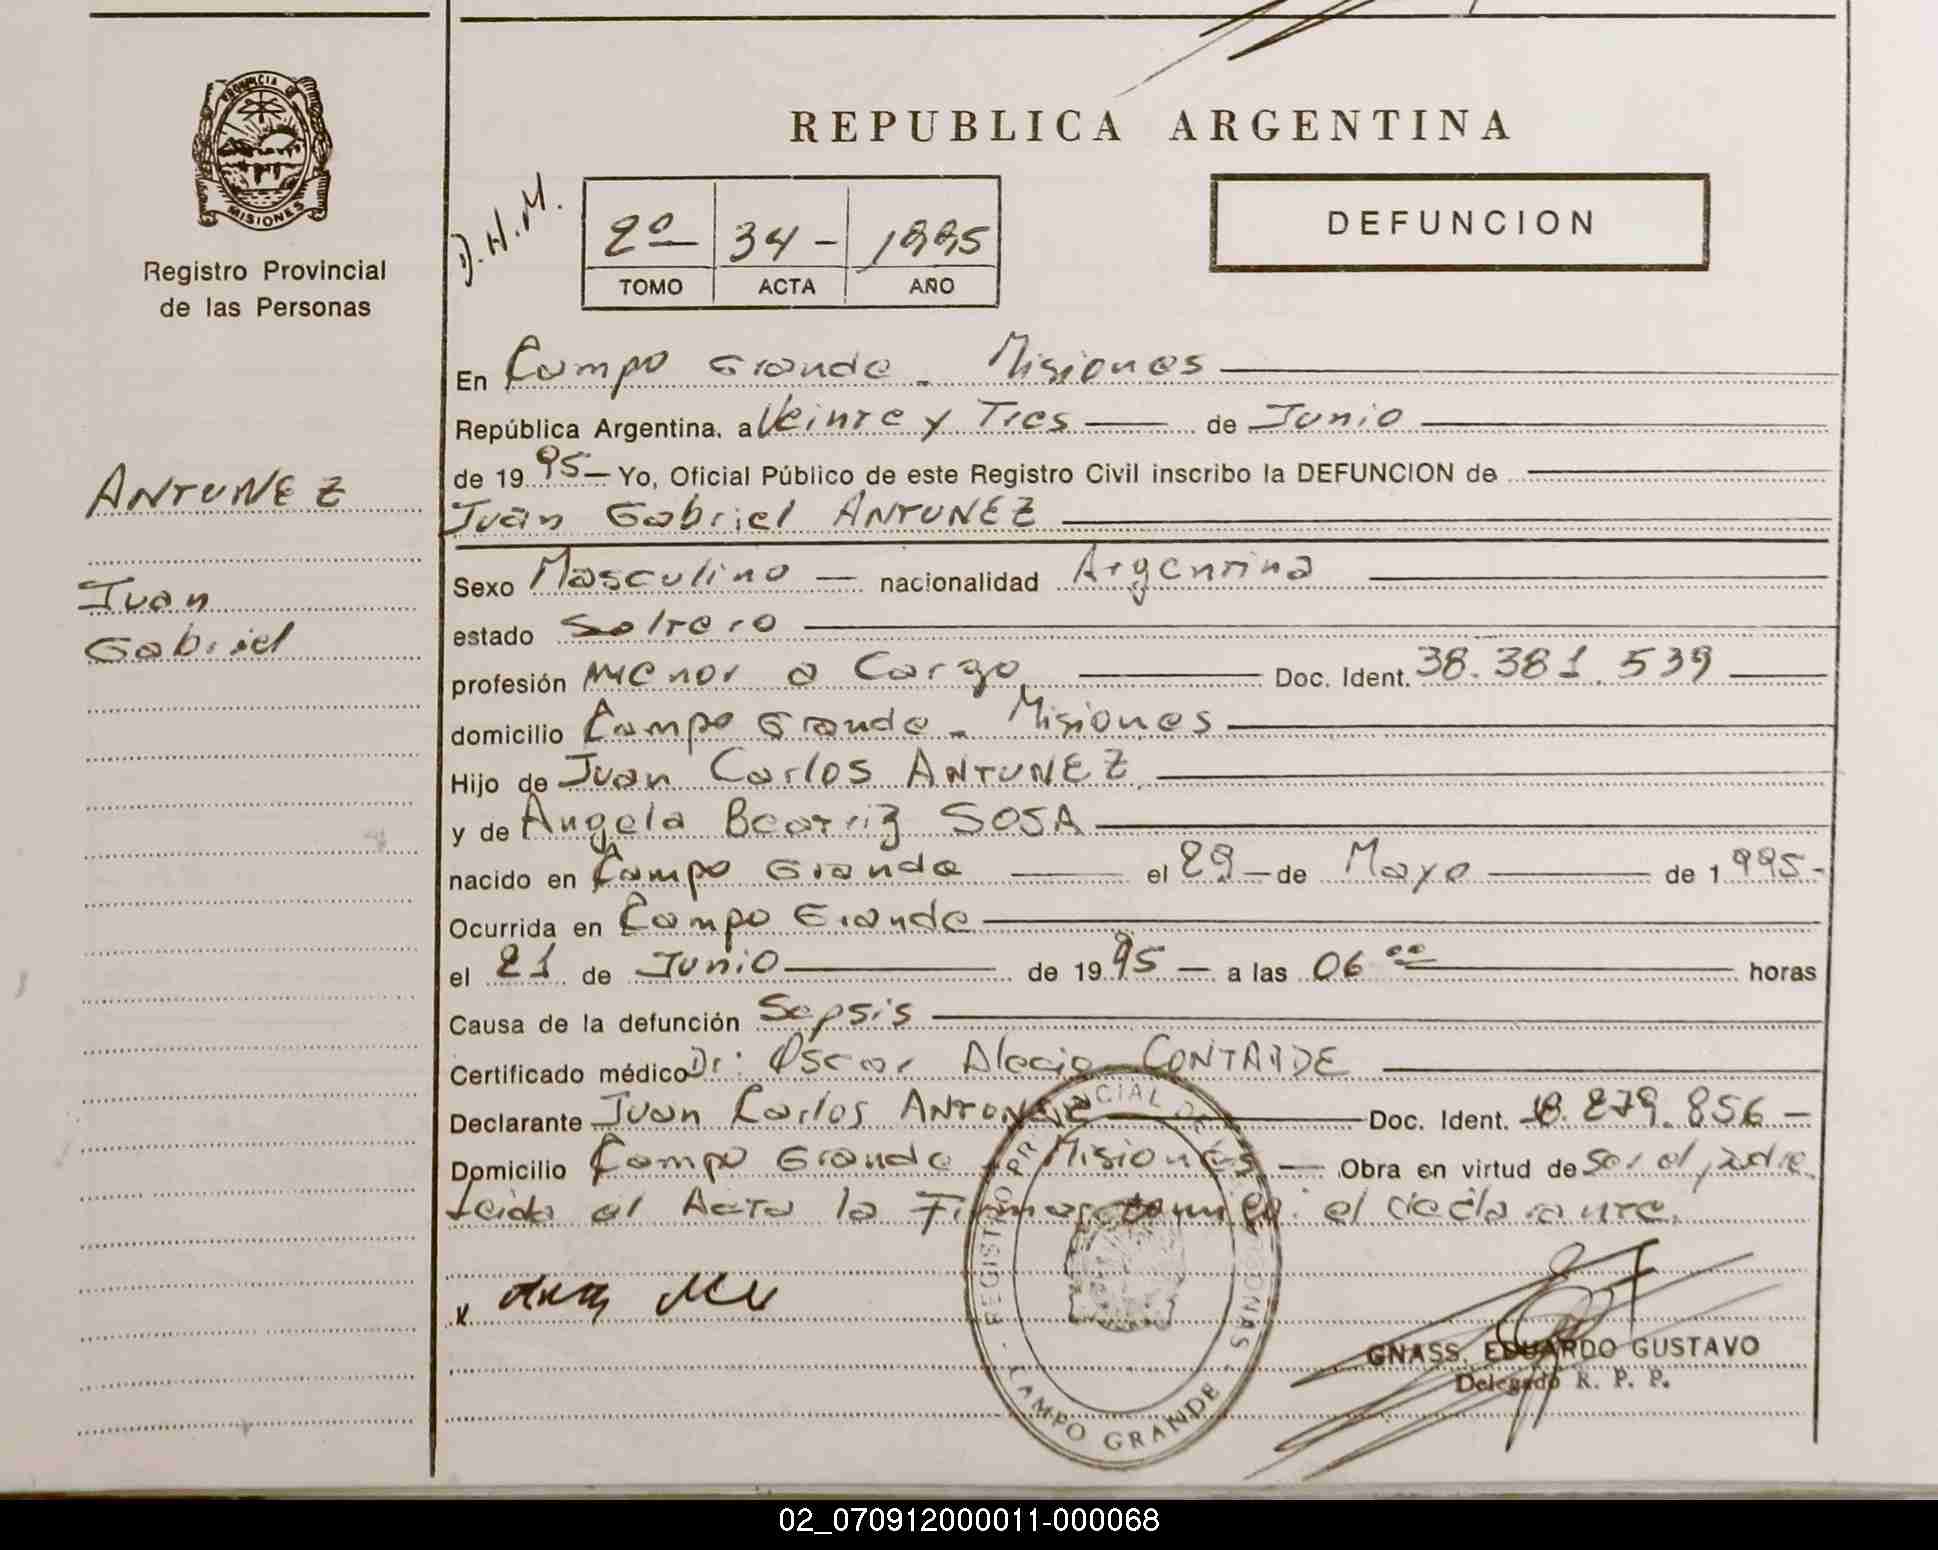 PROVINCIA DE
MISIONES
Registro Provincial
de las Personas
ANTUNEZ
Juan
Gabriel
REPUBLICA ARGENTINA
D.H.M.
2º 34 - 1995
TOMO ACTA AÑO
DEFUNCION
En Campo Grande - Misiones
República Argentina, a Veinte y Tres de Junio
de 19 95 - Yo, Oficial Público de este Registro Civil inscribo la DEFUNCION de
Juan Gabriel ANTUNEZ
Sexo Masculino - nacionalidad Argentina
estado Soltero
profesión Menor a Cargo Doc. Ident. 38.381.539
domicilio Campo Grande - Misiones
Hijo de Juan Carlos ANTUNEZ
y de Angela Beatriz SOSA
nacido en Campo Grande el 29 - de Mayo de 1 995-
Ocurrida en Campo Grande
el 21 de Junio de 19 95 - a las 06 00 horas
Causa de la defunción Sepsis
Certificado médico Dr: Oscar Alecio
Declarante Juan Carlos ANTUNEZ Doc. Ident. 18.279.856 -
Domicilio Campo Grande Misiones - Obra en virtud de ser el padre
Leida el Acta la Firma conmigo: el declarante.
REGISTRO PROVINCIAL DE LAS PERSONAS - CAMPO GRANDE -
GNASS, EDUARDO GUSTAVO
Delegado R. P. P.
02_070912000011-000068